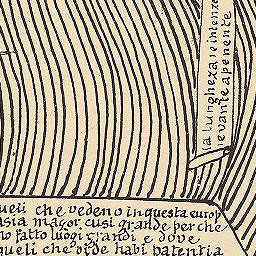 la lungheza ie intenze
levante aponente
queli che vedeno in questa europ
asia mazor cusi grande per che
no fatto luogi grandi e dove
queli che vorde habi patentia